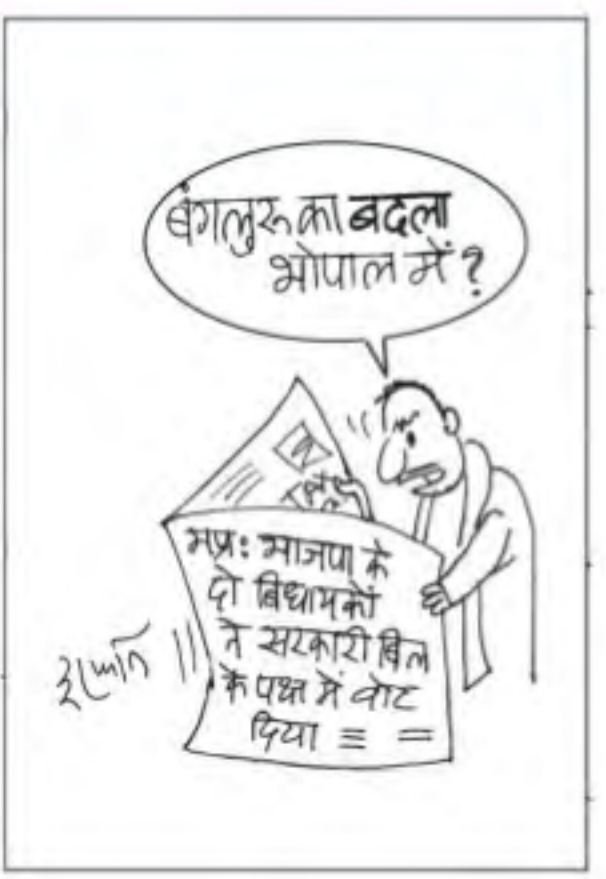 बंगलुरु का बदला
भोपाल में?
मप्र: भाजपा के
दो बिधायकों
ने सरकारी बिल
के पक्ष में वोट
दिया